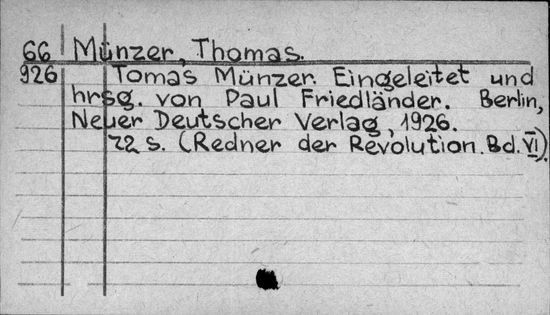 66 Münzer, Thomas.
926 Tomas Münzer. Eingeleitet und
hrsg. von Paul Friedländer. Berlin,
Neuer Deutscher Verlag, 1926.
72 S. (Redner der Revolution. Bd. VI).